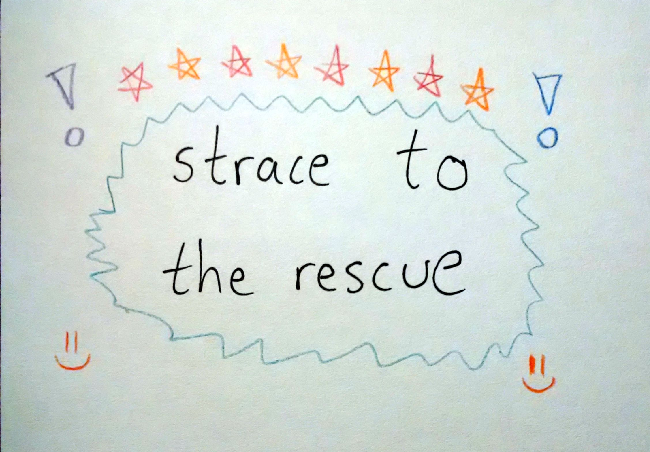 strace to
the rescue